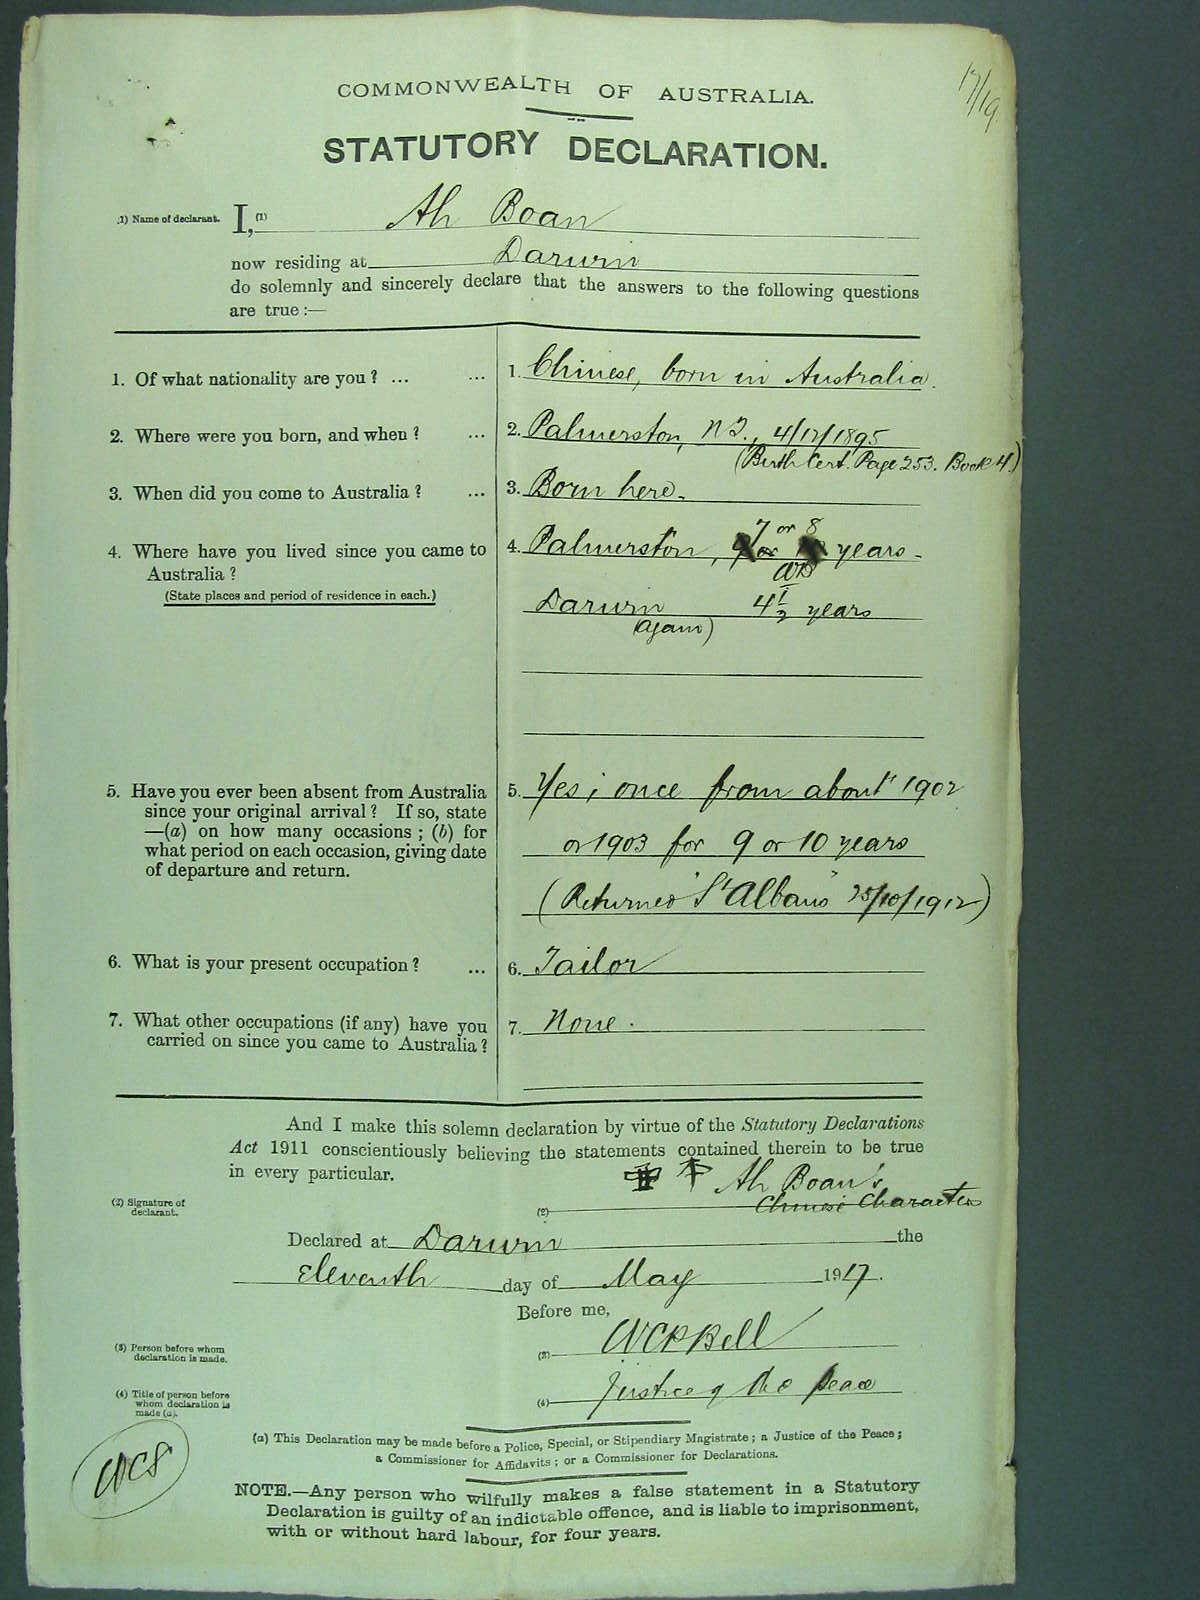 17/19
COMMONWEALTH OF AUSTRALIA.
STATUTORY DECLARATION.
(1) Name of declarant. I, (1) Ah Boan
now residing at Darwin
do solemnly and sincerely declare that the answers to the following questions
are true :—
1. Of what nationality are you ? ... ... 1. Chinese, born in Australia.
2. Where were you born, and when ? ... 2. Palmerston, N.T., 4/12/1895
(Birth Cert. Page 253. Book 4.)
3. When did you come to Australia ? ... 3. Born here.
7 or 8
4. Where have you lived since you came to 4. Palmerston, years.
Australia ?
(State places and period of residence in each.)
Darwin 4½ years
(again)
5. Have you ever been absent from Australia 5. Yes; once from about 1902
since your original arrival ? If so, state
—(a) on how many occasions ; (b) for or 1903 for 9 or 10 years
what period on each occasion, giving date
of departure and return. (Returned "St Albans" 25/10/1912)
6. What is your present occupation ? ... 6. Tailor
7. What other occupations (if any) have you 7. None.
carried on since you came to Australia ?
And I make this solemn declaration by virtue of the Statutory Declarations
Act 1911 conscientiously believing the statements contained therein to be true
in every particular.
Ah Boan's
(2) Signature of declarant. (2) Chinese Characters
Declared at Darwin the
eleventh day of May 1917.
Before me,
(3) Person before whom
declaration is made. (3) WCP Bell
(4) Title of person before
whom declaration is
made (a). (4) Justice of the Peace
(a) This Declaration may be made before a Police, Special, or Stipendiary Magistrate ; a Justice of the Peace ;
a Commissioner for Affidavits ; or a Commissioner for Declarations.
NOTE.—Any person who wilfully makes a false statement in a Statutory
Declaration is guilty of an indictable offence, and is liable to imprisonment,
with or without hard labour, for four years.